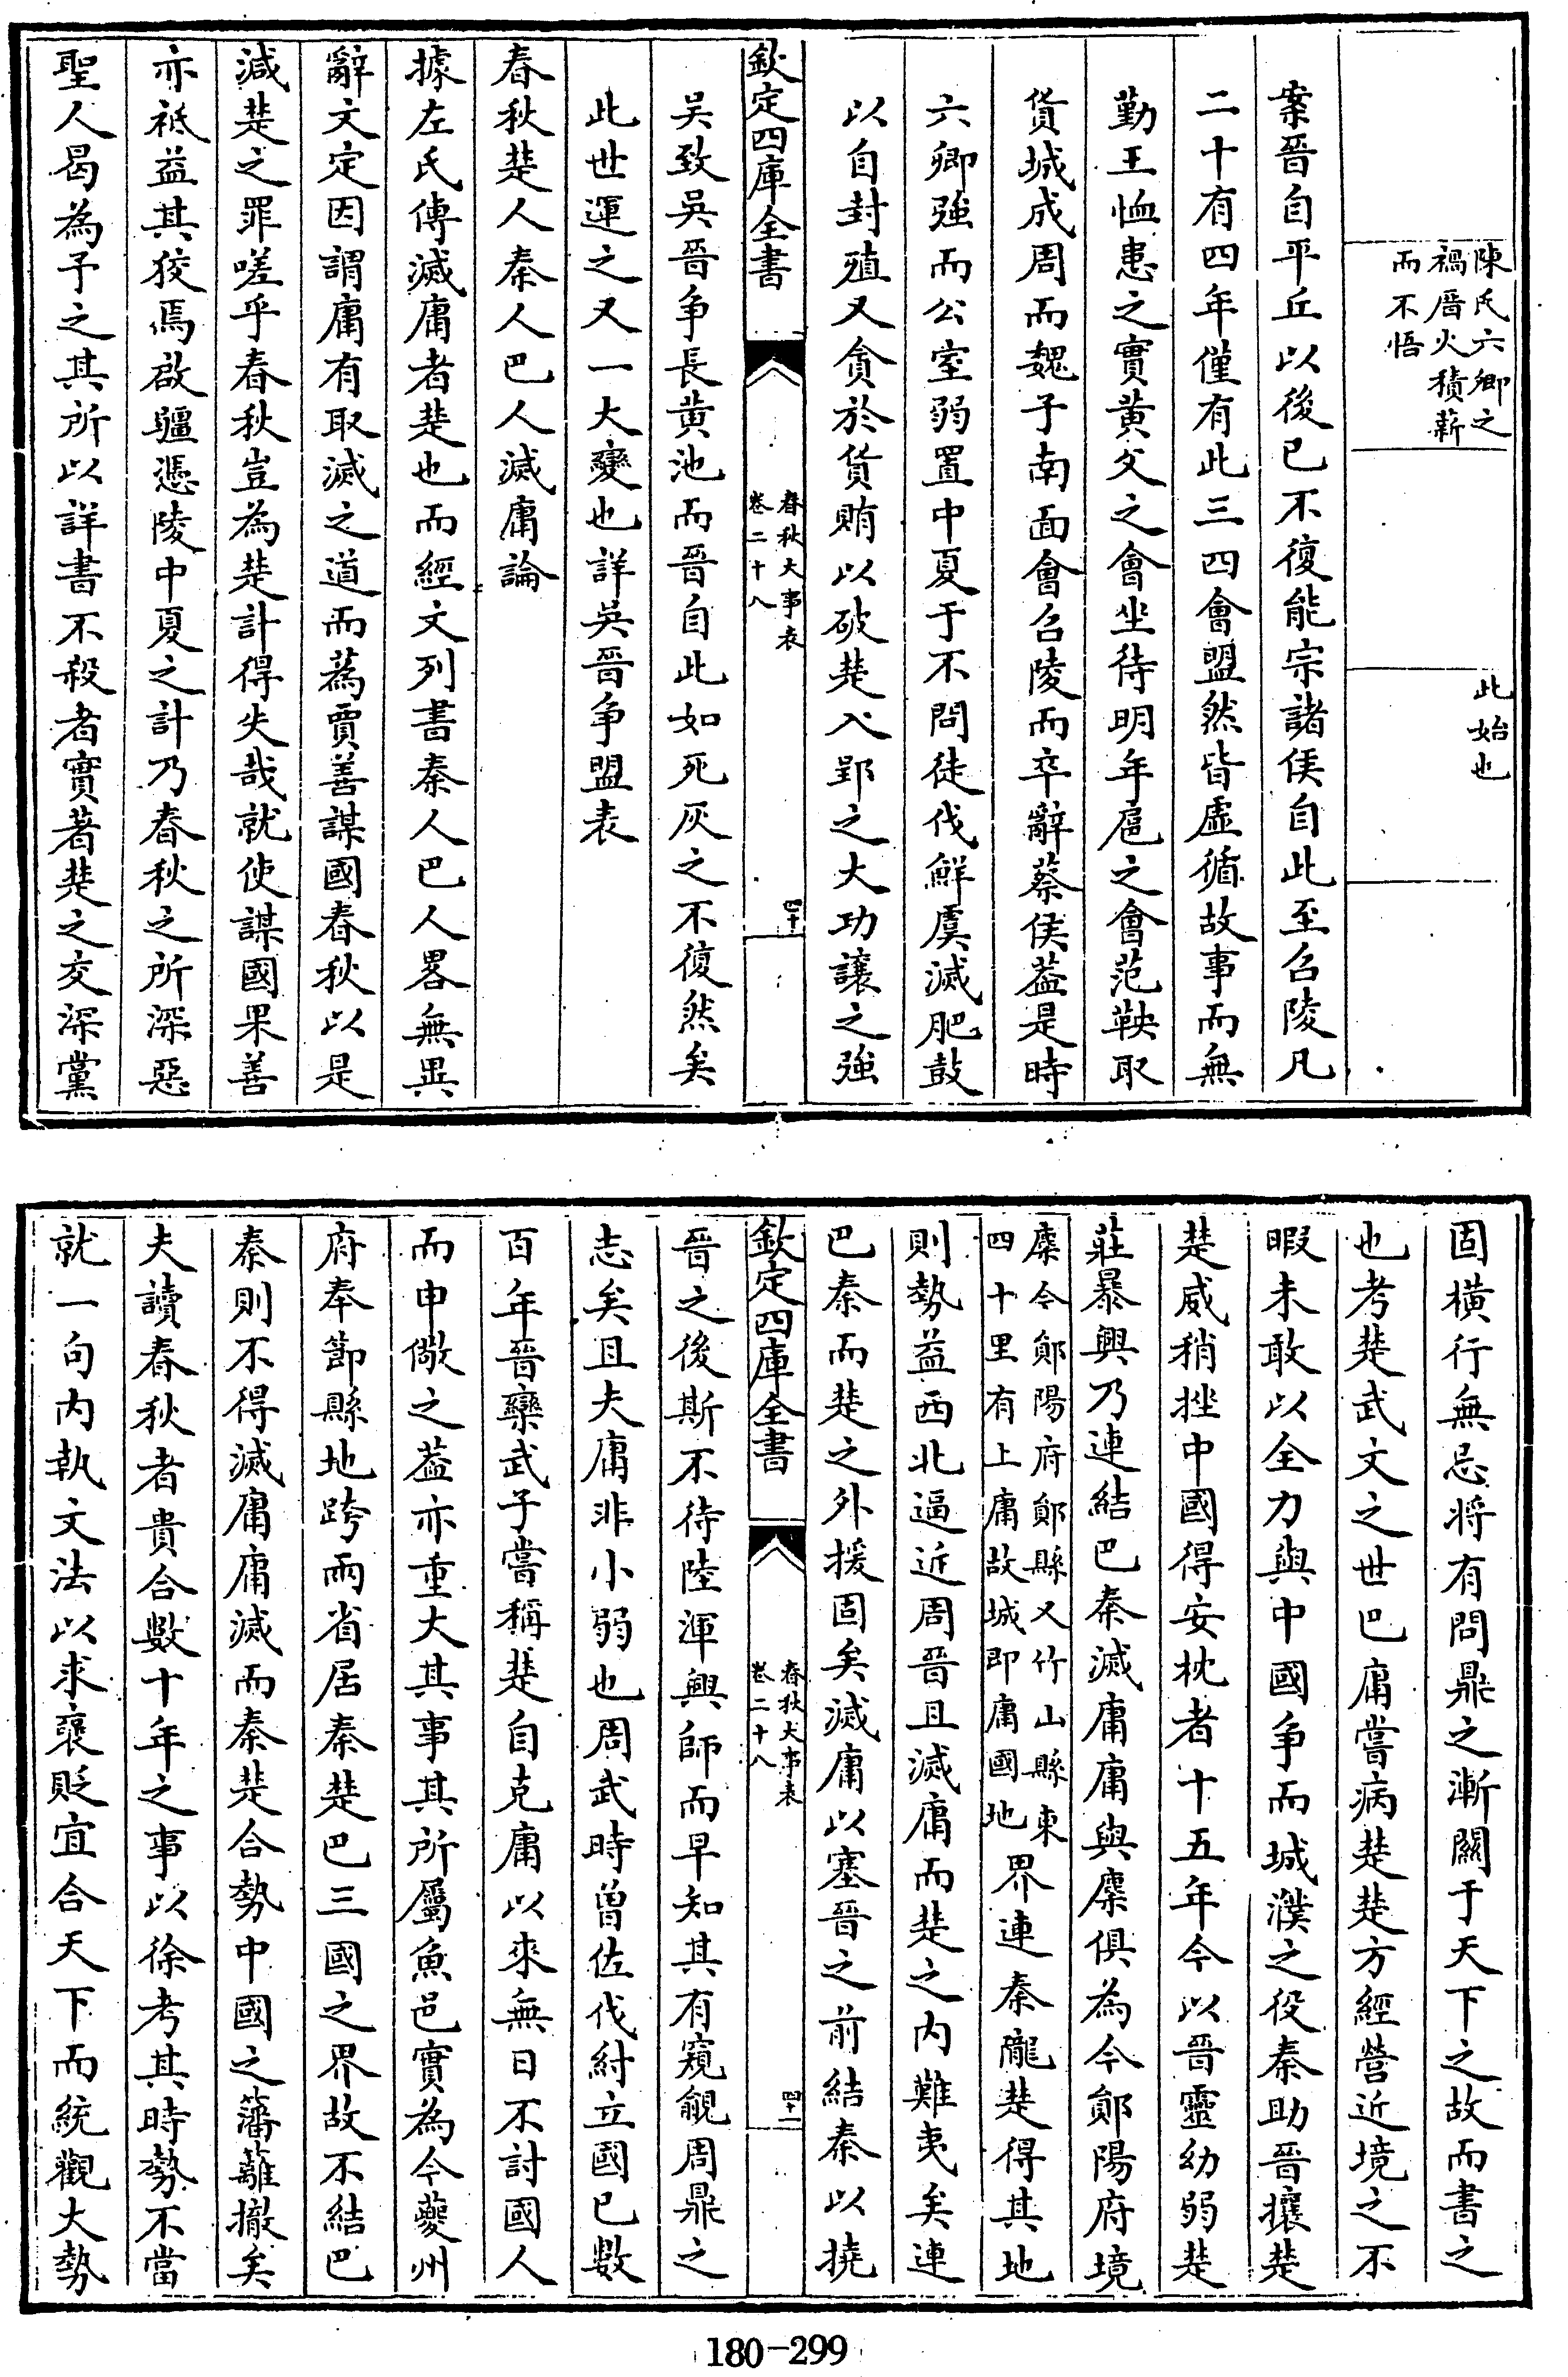 陳氏六卿之
禍厝火積薪
而不悟
此始也
案晉自平丘以後已不復能宗諸侯自此至召陵凡
二十有四年僅有此三四會盟然皆虛循故事而無
勤王恤患之實黃父之會坐待明年扈之會范鞅取
貨城成周而魏子南面會召陵而卒辭蔡侯葢是時
六卿強而公室弱置中夏于不問徒伐鮮虞滅肥鼓
以自封殖又貪於貨賄以破楚入郢之大功讓之強
欽定四庫全書
春秋大事表
卷二十八
四十
吳致吳晉争長黄池而晉自此如死灰之不復然矣
此世運之又一大變也詳吳晉争盟表
春秋楚人秦人巴人滅庸論
據左氏傳滅庸者楚也而經文列書秦人巴人畧無異
辭文定因謂庸有取滅之道而蔿賈善謀國春秋以是
減楚之罪嗟乎春秋豈為楚計得失哉就使謀國果善
亦祗益其狡焉啟疆憑陵中夏之計乃春秋之所深惡
聖人曷為予之其所以詳書不殺者實著楚之交深黨
固橫行無忌將有問鼎之漸關于天下之故而書之
也考楚武文之世巴庸嘗病楚楚方經營近境之不
暇未敢以全力與中國争而城濮之役秦助晉攘楚
楚威稍挫中國得安枕者十五年今以晉靈幼弱楚
莊暴興乃連結巴秦滅庸庸與麇俱為今鄖陽府境
麇今鄖陽府鄖縣又竹山縣東
四十里有上庸故城即庸國地
界連秦隴楚得其地
則勢益西北逼近周晉且滅庸而楚之内難夷矣連
巴秦而楚之外援固矣滅庸以塞晉之前結秦以撓
欽定四庫全書
春秋大事表
卷二十八
四十一
晉之後斯不待陸渾興師而早知其有窺覦周鼎之
志矣且夫庸非小弱也周武時曾佐伐紂立國已數
百年晉欒武子嘗稱楚自克庸以來無日不討國人
而申儆之葢亦重大其事其所屬魚邑實為今夔州
府奉節縣地跨兩省居秦楚巴三國之界故不結巴
秦則不得滅庸庸滅而秦楚合勢中國之藩籬撤矣
夫讀春秋者貴合數十年之事以徐考其時勢不當
就一句内執文法以求襃貶宜合天下而統觀大勢
180-299